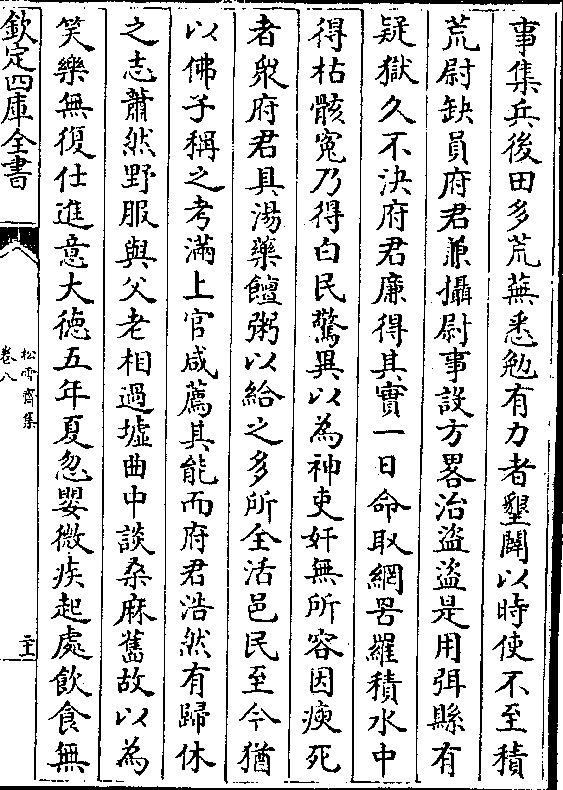 事集兵後田多荒蕪悉勉有力者墾闢以時使不至積
荒尉缺員府君兼攝尉事設方畧治盜盜是用弭縣有
疑獄久不決府君廉得其實一日命取網罟羅積水中
得枯骸寃乃得白民驚異以為神吏奸無所容因瘐死
者衆府君具湯藥饘粥以給之多所全活邑民至今猶
以佛子稱之考滿上官咸薦其能而府君浩然有歸休
之志蕭然野服與父老相過墟曲中談桑麻舊故以為
笑樂無復仕進意大徳五年夏忽嬰微疾起處飲食無
欽定四庫全書
松雪齋集
卷八
二十